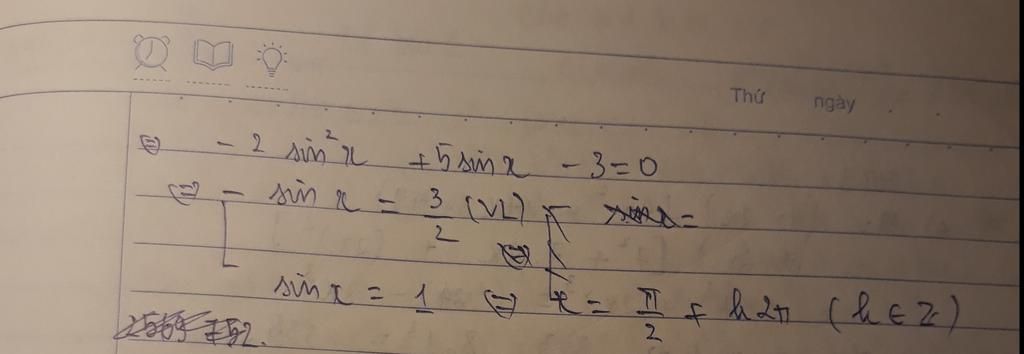 Thứ ngày
⇔ - 2 sin²x + 5 sin x - 3 = 0
⇔ [ sin x = 3/2 (VL)
⇔ [ sin x =
sin x = 1 ⇔ x = π/2 + k2π (k ∈ Z)